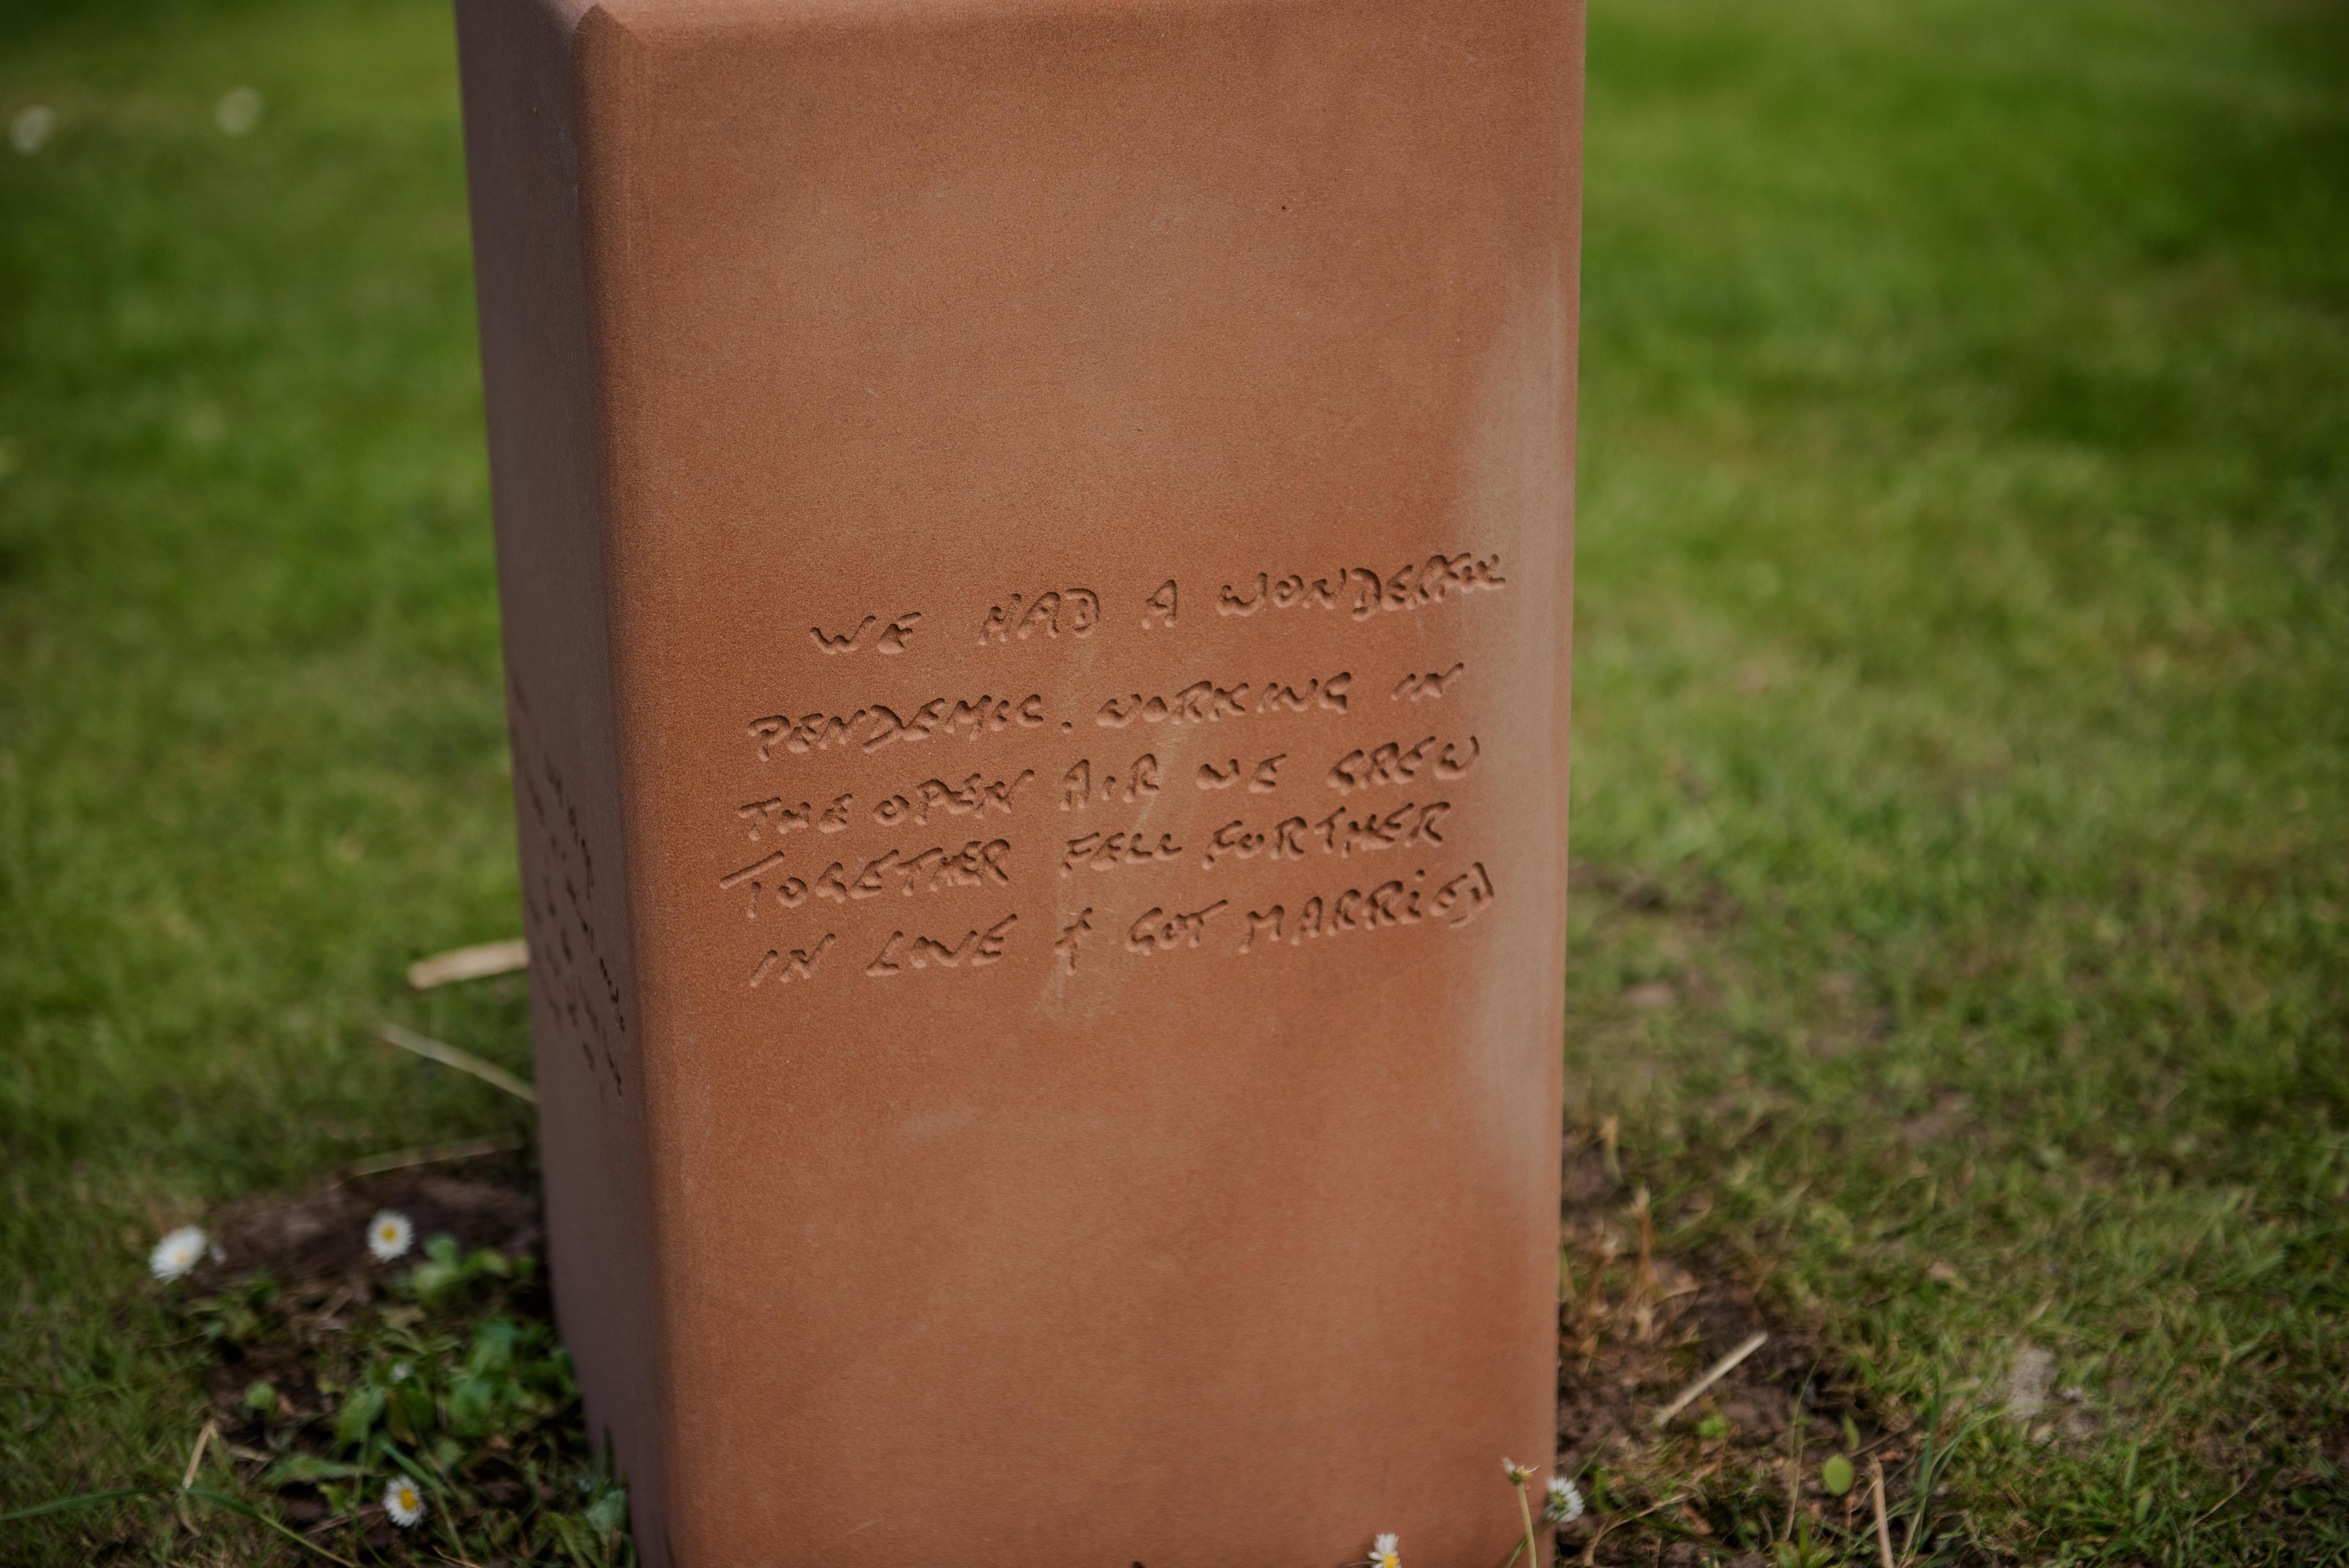 WE HAD A WONDERFUL
PENDEMIC. WORKING IN
THE OPEN AIR WE GREW
TOGETHER FELL FURTHER
IN LOVE & GOT MARRIED